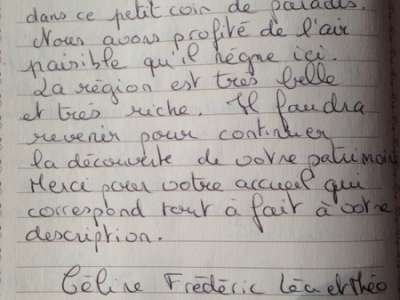 dans ce petit coin de paradis.
Nous avons profité de l'air
paisible qu'il règne ici.
La région est très belle
et très riche. Il faudra
revenir pour continuer
la découverte de votre patrimoin
Merci pour votre accueil qui
correspond tout à fait à votre
description.
Céline Frédéric Léa et Théo